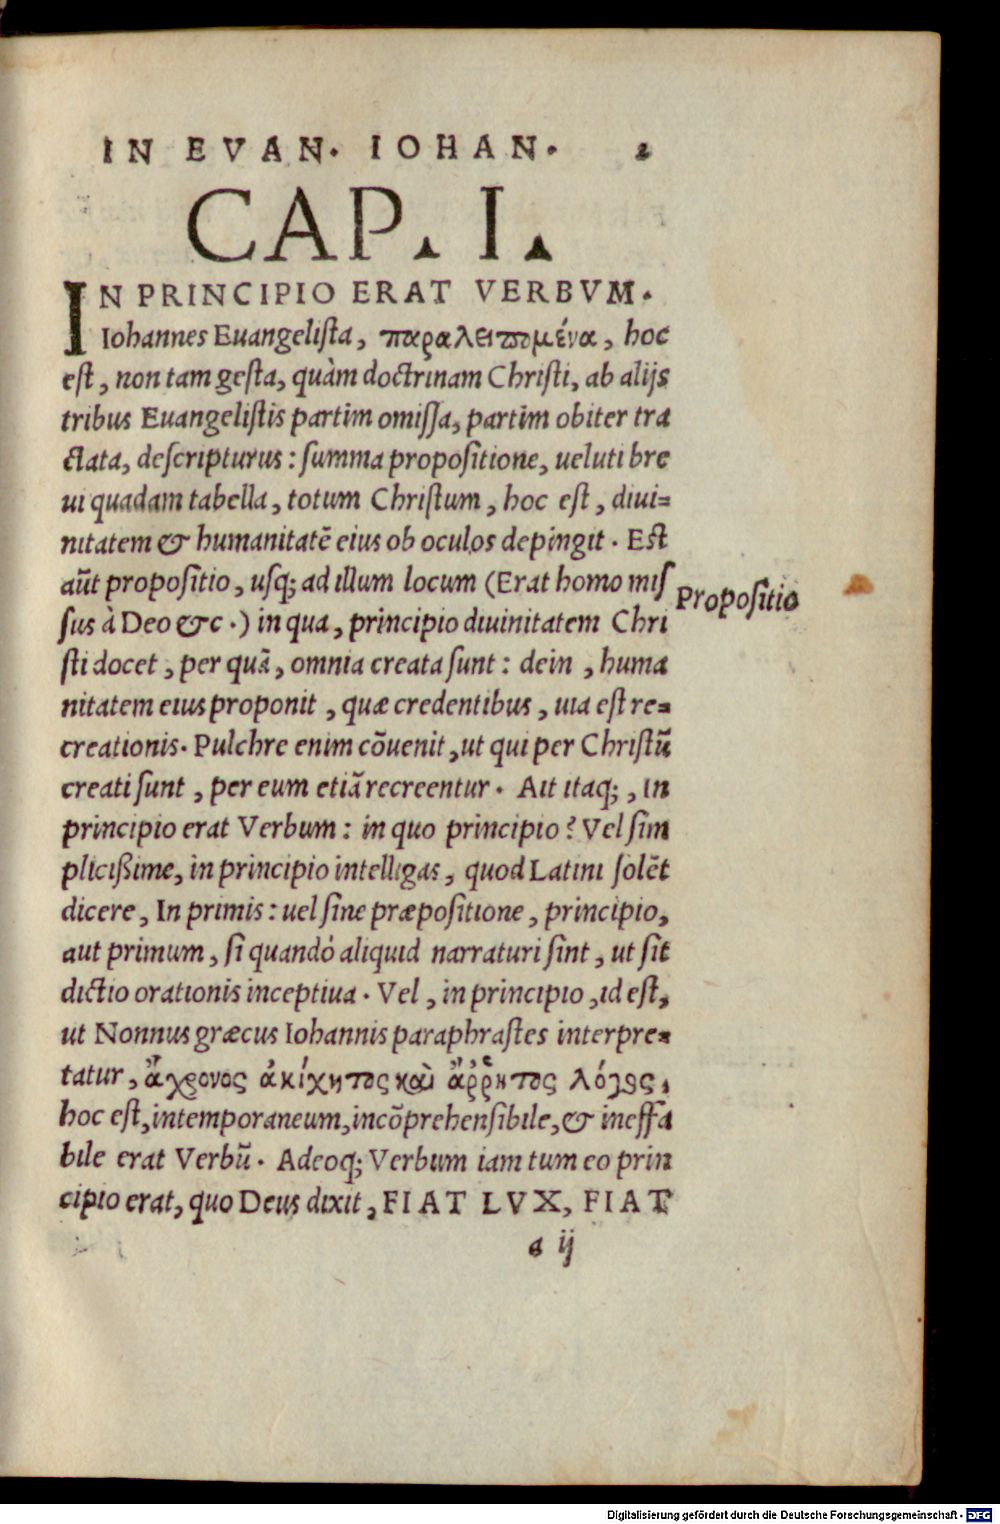 IN EVAN. IOHAN. 2
CAP. I.
IN PRINCIPIO ERAT VERBVM.
Iohannes Euangelista, παραλειπομένα, hoc
est, non tam gesta, quàm doctrinam Christi, ab alijs
tribus Euangelistis partim omissa, partim obiter tra
ctata, descripturus: summa propositione, ueluti bre
ui quadam tabella, totum Christum, hoc est, diui=
nitatem & humanitatē eius ob oculos depingit. Est
aūt propositio, usq; ad illum locum (Erat homo mis
Propositio
sus à Deo &c.) in qua, principio diuinitatem Chri
sti docet, per quā, omnia creata sunt: dein, huma
nitatem eius proponit, quæ credentibus, uia est re=
creationis. Pulchre enim cōuenit, ut qui per Christū
creati sunt, per eum etiā recreentur. Ait itaq;, in
principio erat Verbum: in quo principio? Vel sim
plicißime, in principio intelligas, quod Latini solēt
dicere, In primis: uel sine præpositione, principio,
aut primum, si quandó aliquid narraturi sint, ut sit
dictio orationis inceptiua. Vel, in principio, id est,
ut Nonnus græcus Iohannis paraphrastes interpre=
tatur, ἄχρονος ἀκίχητος καὶ ἄῤῥητος λόγος,
hoc est, intemporaneum, incōprehensibile, & ineffa
bile erat Verbū. Adeoq; Verbum iam tum eo prin
cipio erat, quo Deus dixit, FIAT LVX, FIAT
a ij
Digitalisierung gefördert durch die Deutsche Forschungsgemeinschaft - DFG